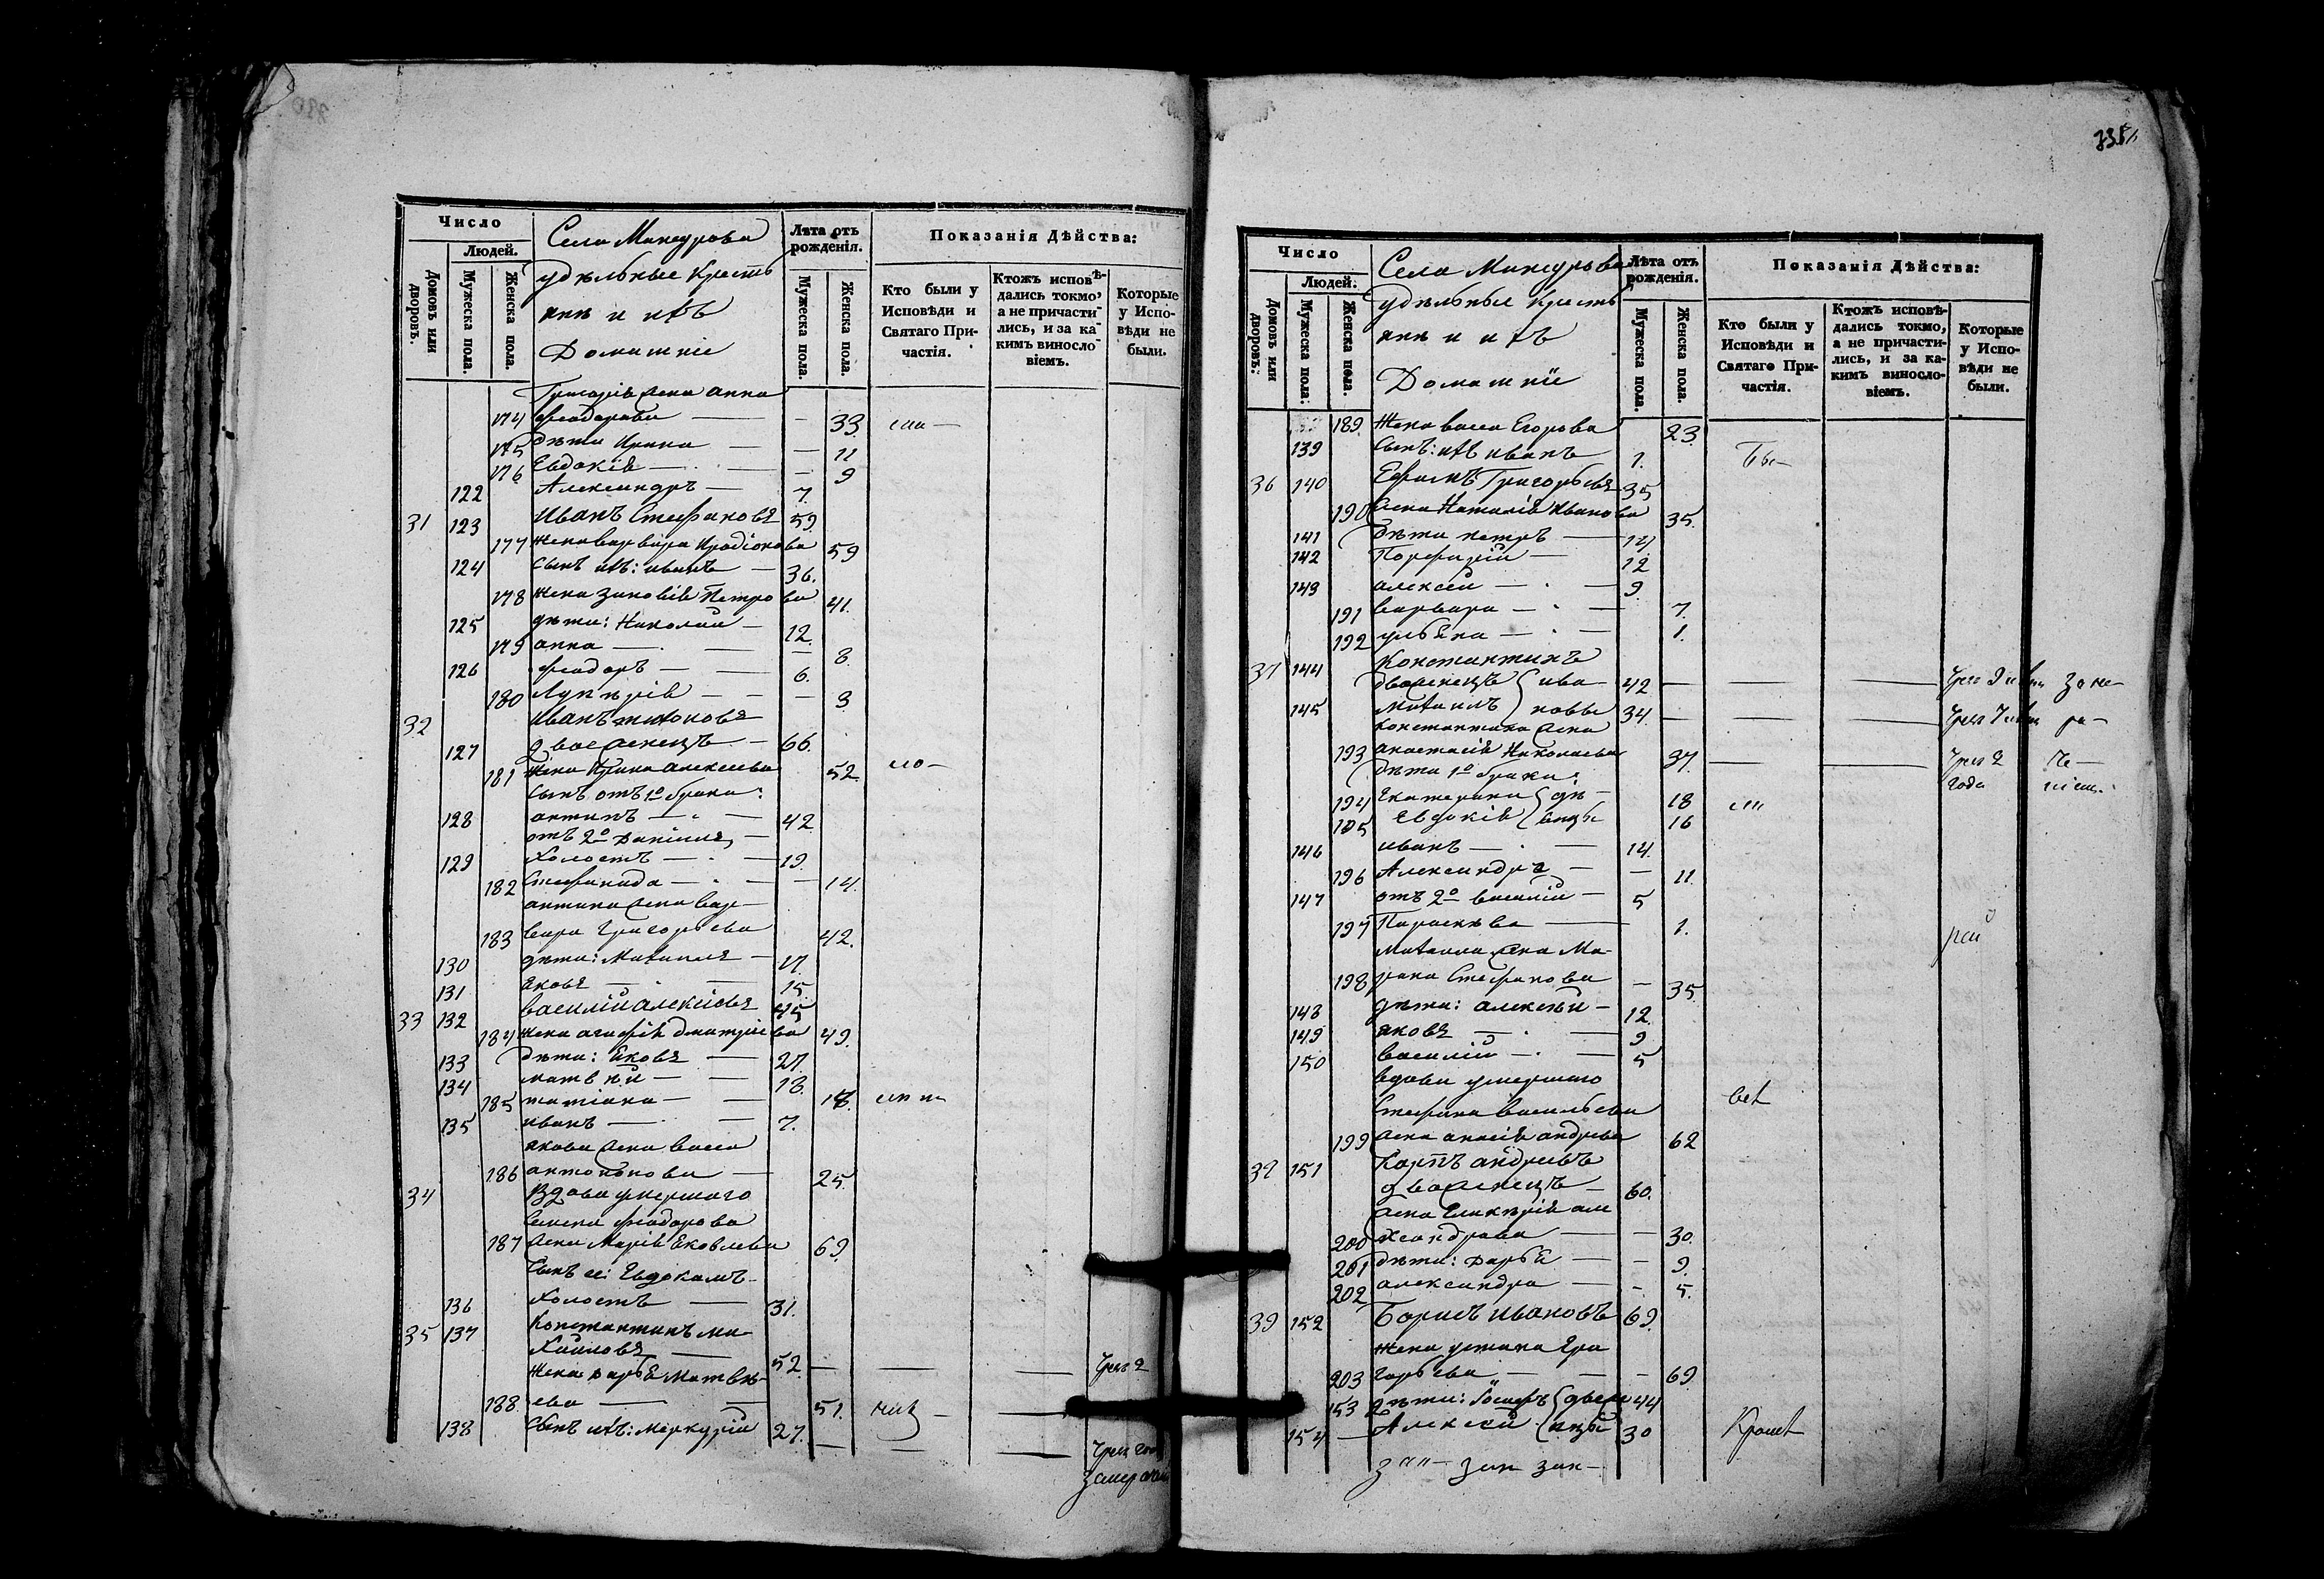 Число
Людей.
Домовъ или дворовъ.
Мужеска пола.
Женска пола.
Села Македрова
удѣльные Кресть
яне и ихъ
Домашніе
Лѣта отъ рожденія.
Мужеска пола.
Женска пола.
Показанія Дѣйства:
Кто были у Исповѣди и Святаго Причастія.
Ктожъ исповѣдались токмо, а не причастились, и за какимъ винословіемъ.
Которые у Исповѣди не были.
Григорія жена Анна
174 Феодорова — — 33
175 дѣти Ирина — — 11
176 Евдокія — — 9
122 Александръ — 7.
31 123 Иванъ Стефановъ 59.
177 Жена Варвара Иродіонова 59
124 сынъ ихъ: иванъ — 36.
178 Жена Зиновія Петрова 41.
125 дѣти: Николай — 12.
179 анна — — 8.
126 феодоръ — — 6.
180 Лукерія — — 3.
32 Иванъ
127 двоеженецъ — 66.
181 Жена Ирина алексеева 52.
сынъ отъ 1о брака:
128 антипъ — 42
отъ 2о Даніилъ —
129 Холостъ — 19.
182 Стефанида — — 14.
антипа жена Вар—
183 вара Григорьева 42.
130 дѣти: Михаилъ — 17.
131 яковъ — 15.
33 132 василій алексіевъ 45
184 Жена агафія дмитріева 49.
133 дѣти: Яковъ — 27.
134 матвѣй — — 18.
185 татіана — —
135 иванъ — — 7.
якова жена васса
186 антонова — 25.
34 Вдова умершаго
Семена феодорова
187 жена Марія Яковлева 69.
Сынъ ее: Евдокимъ
136 Холостъ — 31.
35 137 Константинъ ми-
хайловъ — 52. — — — Чрез 2
Жена дарья Матвѣ-
188 ева — — 51.
138 сынъ ихъ: Меркурій 27. — — —
Число
Людей.
Домовъ или дворовъ.
Мужеска пола.
Женска пола.
Села Македрова
удѣльные Кресть
яне и ихъ
Домашніе
Лѣта отъ рожденія.
Мужеска пола.
Женска пола.
Показанія Дѣйства:
Кто были у Исповѣди и Святаго Причастія.
Ктожъ исповѣдались токмо, а не причастились, и за какимъ винословіемъ.
Которые у Исповѣди не были.
189 Жена васса Егорова 23.
139 сынъ: ихъ иванъ 1. Бы—
36 140 Ефимъ Григорьевъ 35
190 жена Наталія Иванова 35.
141 дѣти петръ — 14
142 Порфирій — 12
143 алексей — 9
191 варвара — — 7.
192 ульяна — — 1.
37 144 Константинъ
двоеженецъ ива- 42 — — —
145 Михаилъ новы 34 — — —
Константина жена
193 анастасія Николаева 37. — — Чрез 2 года
дѣти 1о брака:
194 Екатерина дѣ- 18
195 Евдокія вицы 16
146 иванъ — 14.
196 Александра — — 11.
147 отъ 2о василій — 5
197 Параскева — 1.
Михаила жена Ма-
198 рина Стефанова — 35.
148 дѣти: алексѣй — 12.
149 яковъ — 9
150 василій — 5
вдова умершаго
Стефана васильева
199 жена анисія андреева 62
151 Карпъ андреевъ
двоеженецъ — 60.
жена Гликерія але
200 ксандрова — — 30.
201 дѣти: дарья — — 9.
202 александра — — 5.
39 152 Борисъ ивановъ 69.
Жена устина Гри
203 горьева — — 69.
153 дѣти: Іосифъ двоеже 44
154 — Алексей нцы 30